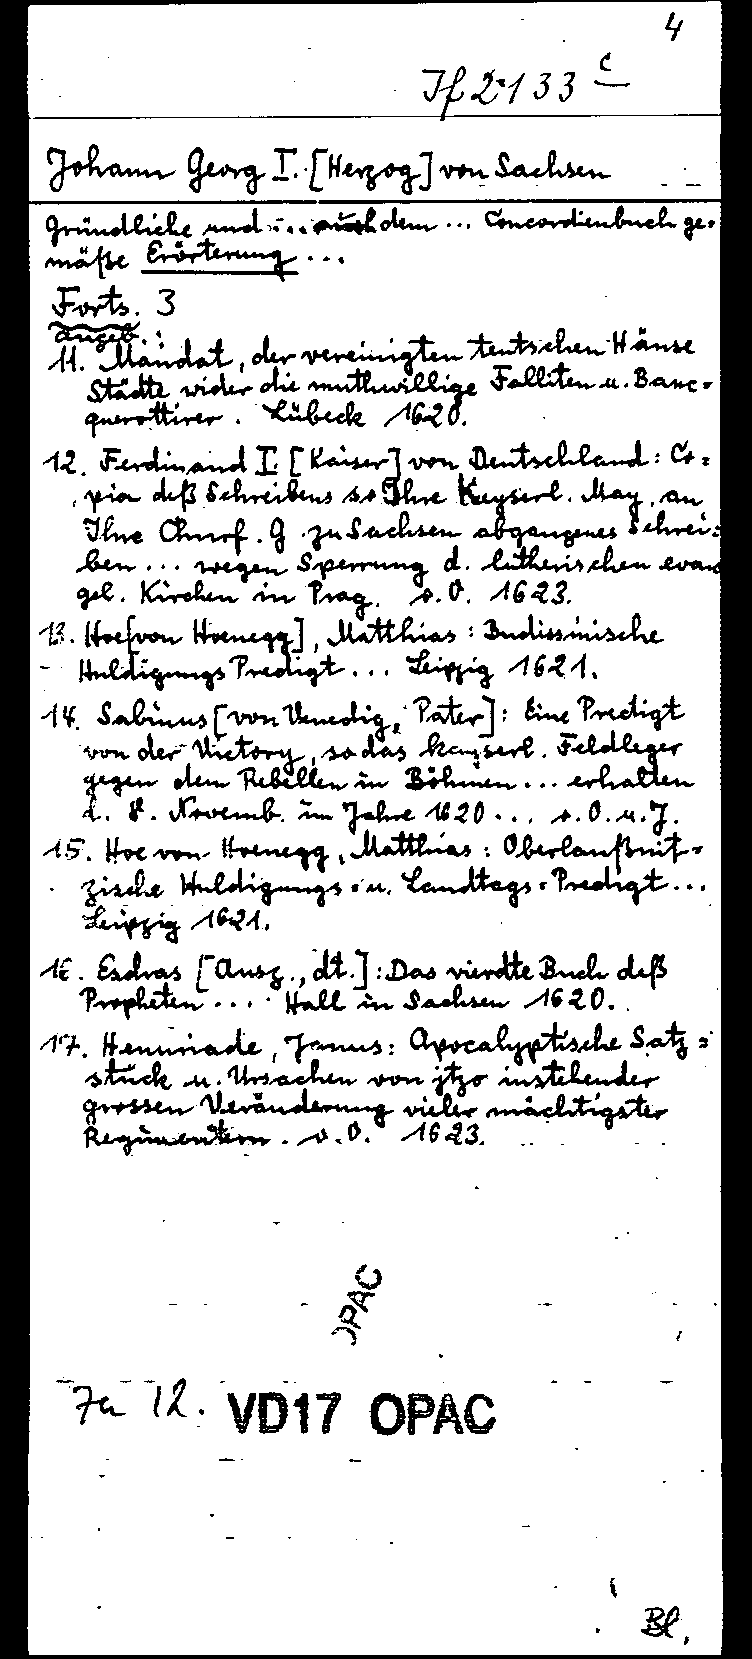 4
If 2133 c
Johann Georg I. [Herzog] von Sachsen
Gründliche und ... auch dem ... Concordienbuch ge-
mäße Erörterung ...
Forts. 3
angeb.:
11. Mandat, der vereinigten teutschen Hänse
Städte wider die muthwillige Falliten u. Banc=
querottirer. Lübeck 1620.
12. Ferdinand I. [Kaiser] von Deutschland: Co=
pia deß Schreibens so Ihre Keyserl. May. an
Ihre Churf. G. zu Sachsen abgangenes Schrei=
ben ... wegen Sperrung d. lutherischen evan
gel. Kirchen in Prag. o.O. 1623.
13. Hoe [von Hoenegg], Matthias: Budissinische
Huldigungs Predigt ... Leipzig 1621.
14. Sabinus [von Venedig, Pater]: Eine Predigt
von der Victory, so das kayserl. Feldleger
gegen dem Rebellen in Böhmen ... erhalten
d. 8. Novemb. im Jahre 1620 ... o.O.u.J.
15. Hoe von Hoenegg, Matthias: Oberlaußnit=
zische Huldigungs= u. Landtags=Predigt ...
Leipzig 1621.
16. Esdras [Ausz., dt.]: Das vierdte Buch deß
Propheten .... Hall in Sachsen 1620.
17. Hemuriade, Janus: Apocalyptische Satz=
stück u. Ursachen von jtzo instehender
grossen Veränderung vieler mächtigster
Regimentern. o.O. 1623.
OPAC
Za 12. VD17 OPAC
Bl.